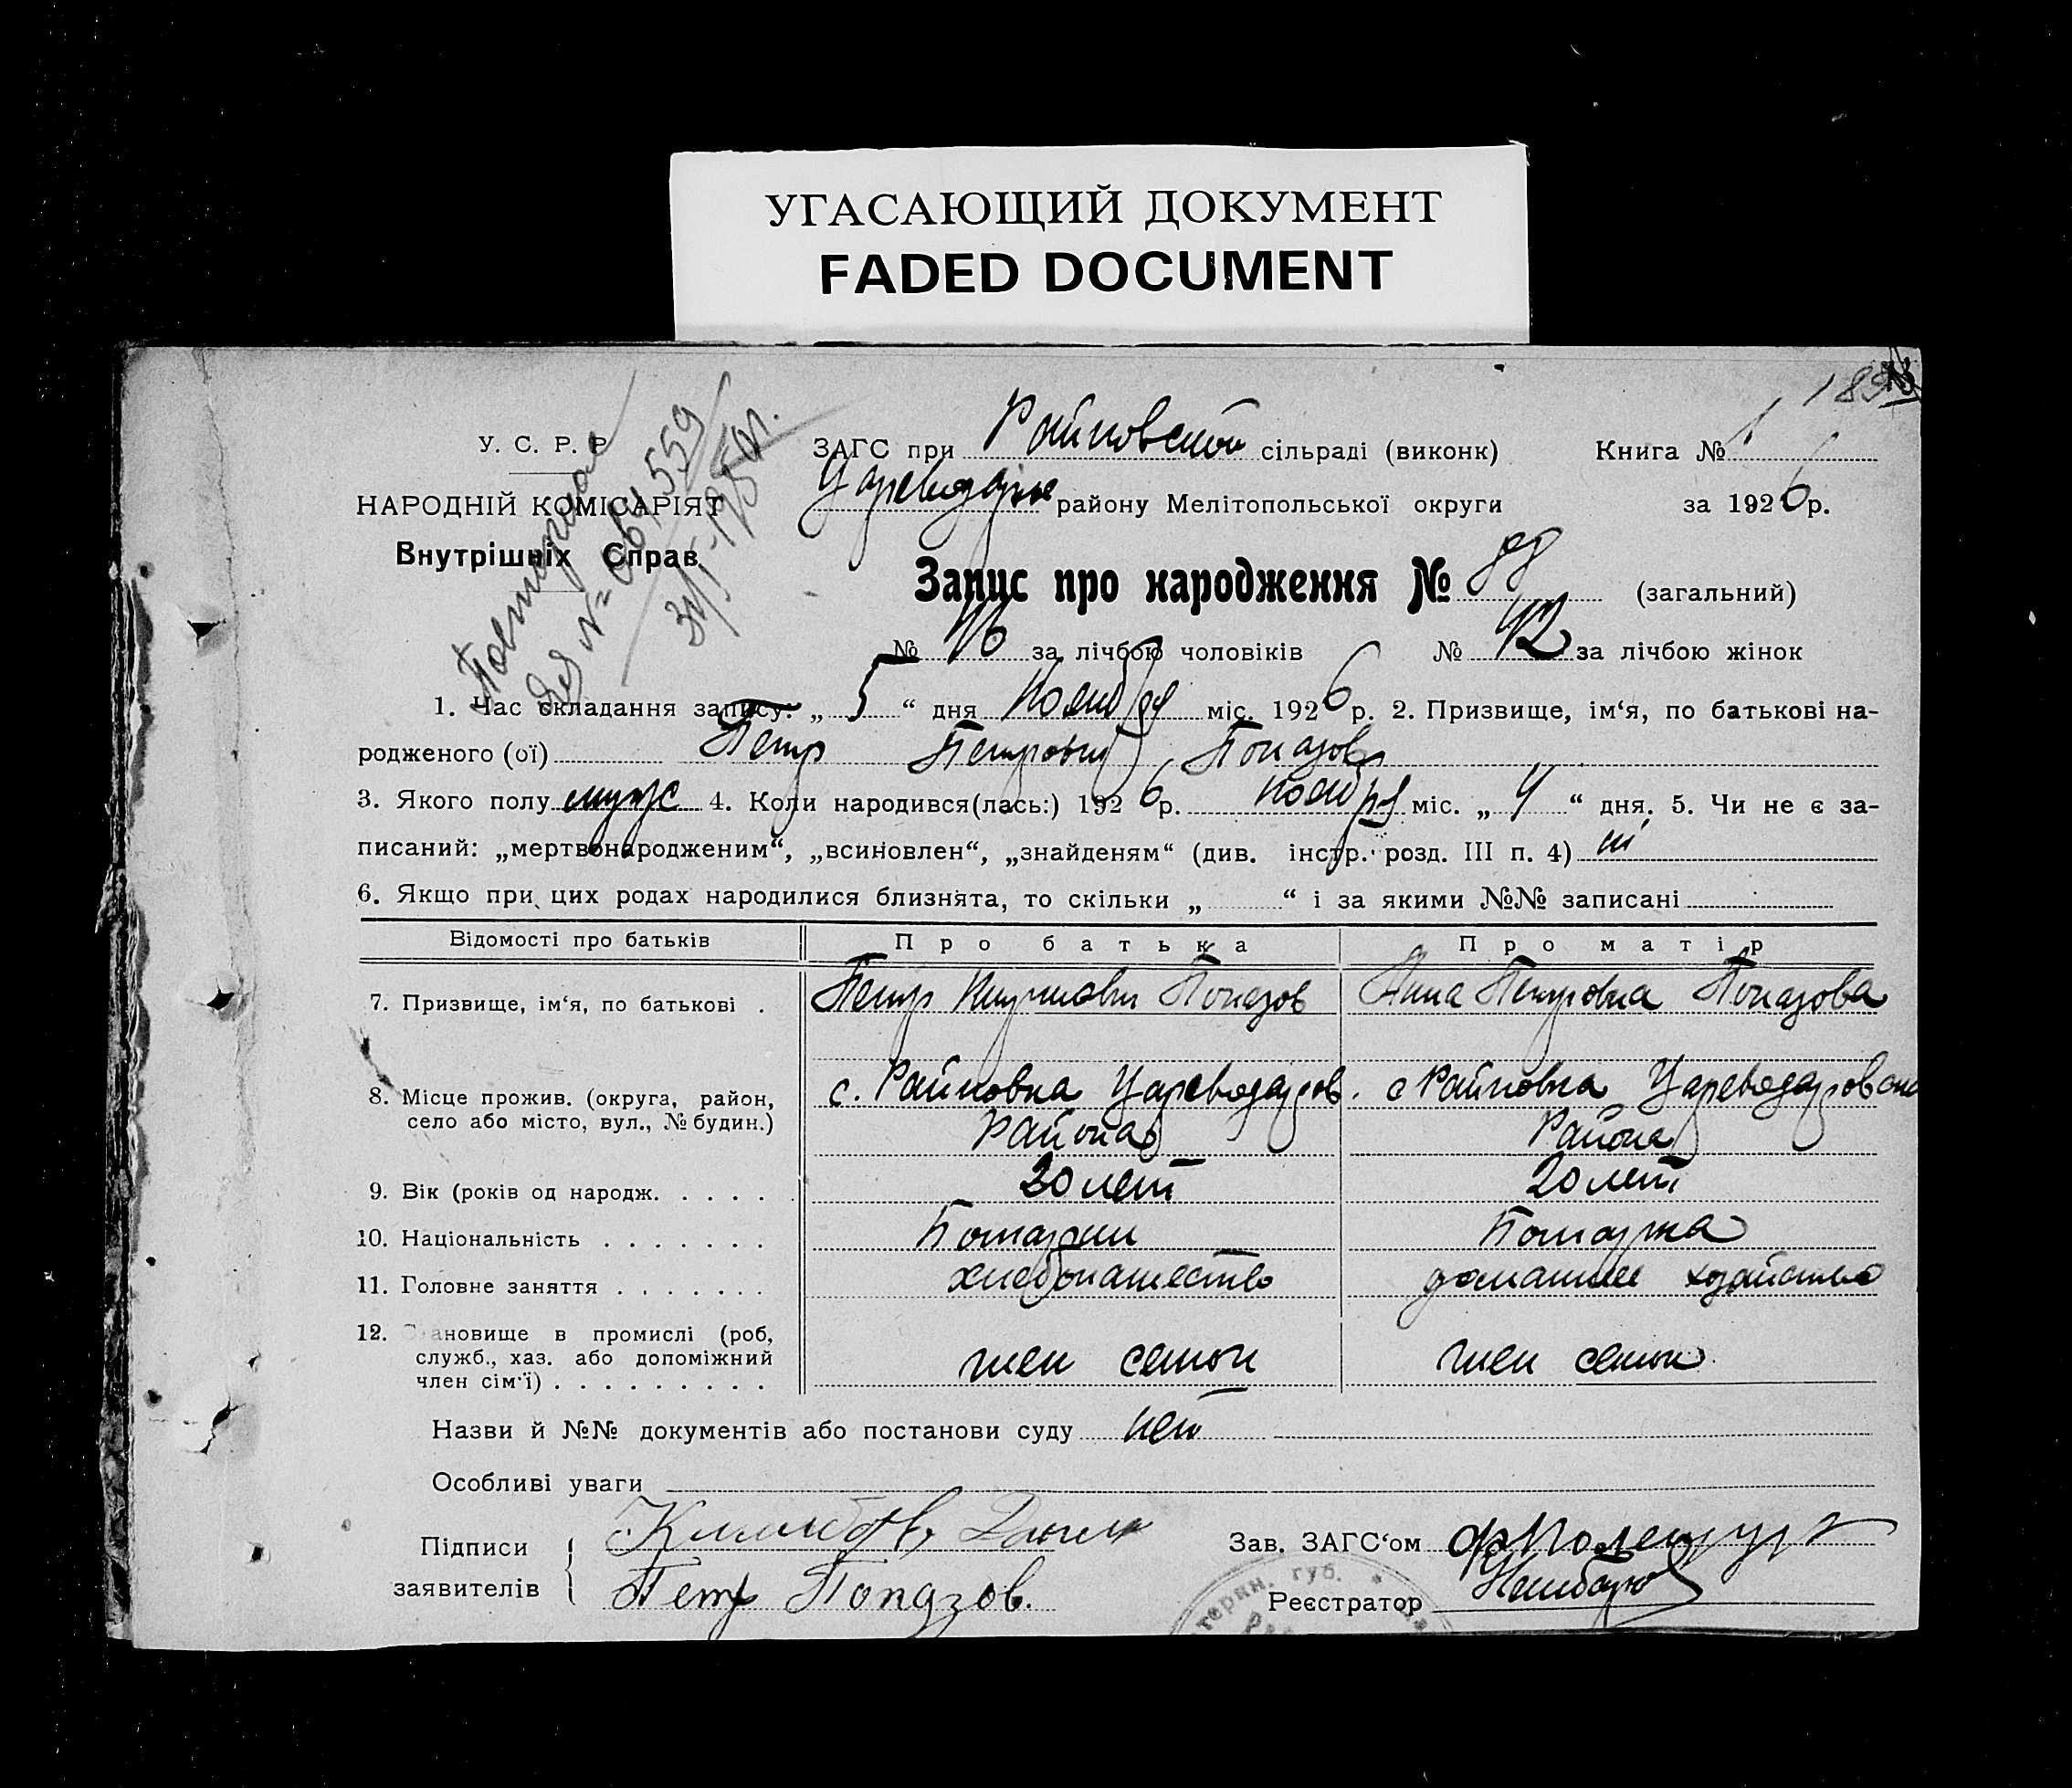 УГАСАЮЩИЙ ДОКУМЕНТ
FADED DOCUMENT
У. С. Р. Р
НАРОДНІЙ КОМІСАРІЯТ
Внутрішніх Справ
Повторное
31/I-1950г.
ЗАГС при Райновской сільраді (виконк) Книга № 1
району Мелітопольської округи за 1926 р.
Запис про народження № 88 (загальний)
№ 46 за лічбою чоловіків № 42 за лічбою жінок
1. Час складання запису: „ 5 “ дня Ноября міс. 1926 р. 2. Призвище, ім‘я, по батькові на-
родженого (ої) Петр Петрович Попазов
3. Якого полу муж 4. Коли народився(лась:) 1926 р. ноября міс. „ 4 “ дня. 5. Чи не є за-
писаний: „мертвонародженим“, „всиновлен“, „знайденям“ (див. інстр. розд. III п. 4)
6. Якщо при цих родах народилися близнята, то скільки „ “ і за якими №№ записані
Відомості про батьків Про батька Про матір
7. Призвище, ім‘я, по батькові . Петр Попазов Анна Петровна Попазова
8. Місце прожив. (округа, район, с. Райновка Цареводаров. с Райновка Цареводаровско
село або місто, вул., № будин.) Района Района
9. Вік (років од народж. . . . . 20 лет 20 лет
10. Національність . . . . . . . Болгарин Болгарка
11. Головне заняття . . . . . . . хлебопашество домашнее хозяйство
12. Становище в промислі (роб,
служб., хаз. або допоміжний член семьи член семьи
член сім‘ї) . . . . . . . . .
Назви й №№ документів або постанови суду нет
Особливі уваги
Підписи
заявителів Петр Попазов.
Зав. ЗАГС‘ом
Реєстратор
губ.